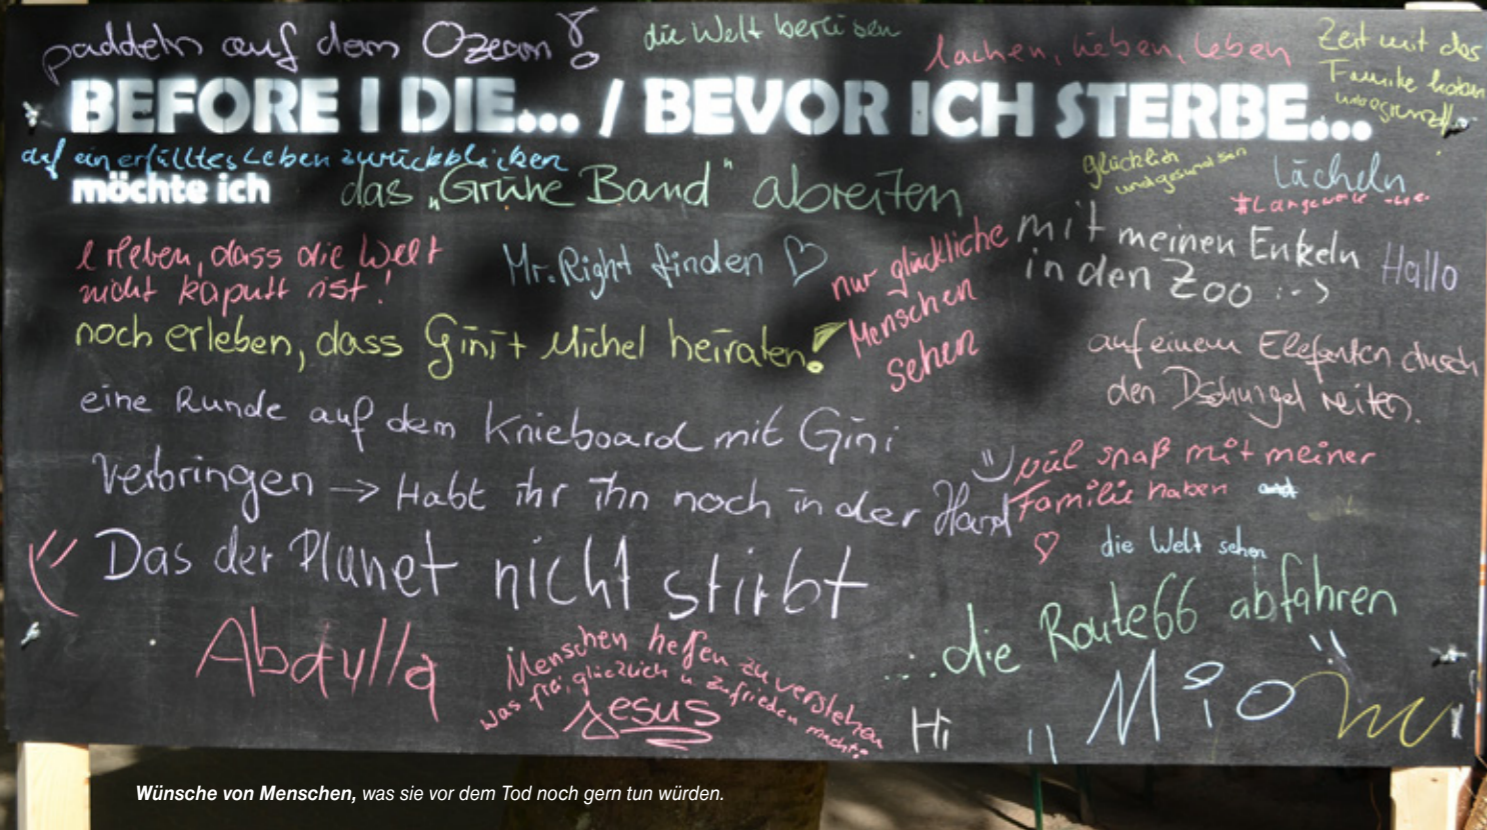 paddeln auf dem Ozean
die Welt bereisen
lachen, lieben, leben
Zeit mit der
Familie haben
BEFORE I DIE... / BEVOR ICH STERBE...
auf ein erfülltes Leben zurückblicken
möchte ich
das „Grüne Band" abreiten
glücklich
und gesund sein
Lächeln
erleben, dass die Welt
nicht kaputt ist!
Mr. Right finden ♡
nur glückliche
Menschen
sehen
mit meinen Enkeln
in den Zoo :->
Hallo
noch erleben, dass Gini + Michel heiraten!
auf einem Elefanten durch
den Dschungel reiten.
eine Runde auf dem Knieboard mit Gini
verbringen → Habt ihr ihn noch in der Hand
viel spaß mit meiner
Familie haben
♡
die Welt sehen
Das der Planet nicht stirbt
...die Route 66 abfahren
Abdulla
Menschen helfen zu verstehen
was frei, glücklich u. zufrieden macht:
Jesus
Hi
Mio
Wünsche von Menschen, was sie vor dem Tod noch gern tun würden.